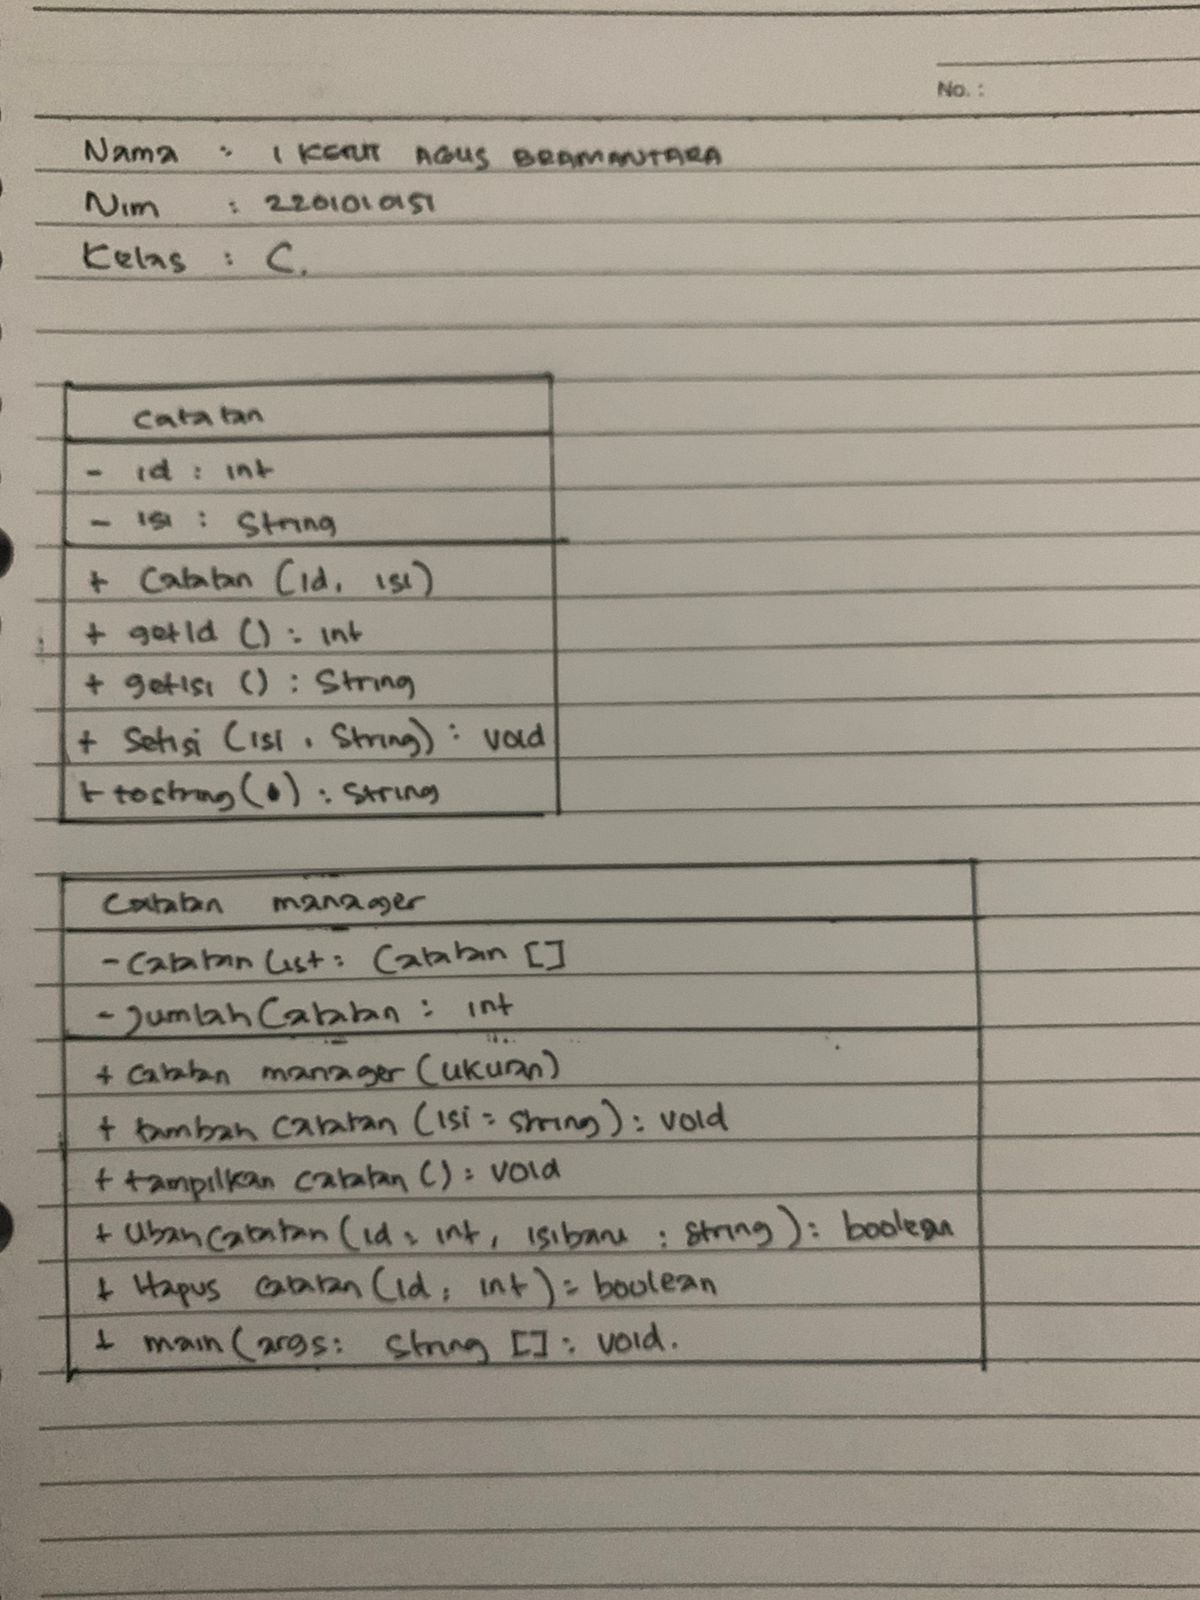 No. :
Nama : I KETUT AGUS BRAMANTARA
Nim : 2201010151
Kelas : C.
Catatan
- id : int
- isi : String
+ Catatan (id, isi)
+ getId () : int
+ getIsi () : String
+ SetIsi (isi , String) : void
+ toString() : String
Catatan manager
- Catatan List : Catatan []
- Jumlah Catatan : int
+ Catatan manager (ukuran)
+ tambah Catatan (isi : String) : void
+ tampilkan catatan () : void
+ Ubah Catatan (id : int, isibaru : String) : boolean
+ Hapus Catatan (id : int) : boolean
+ main (args : String [] : void.